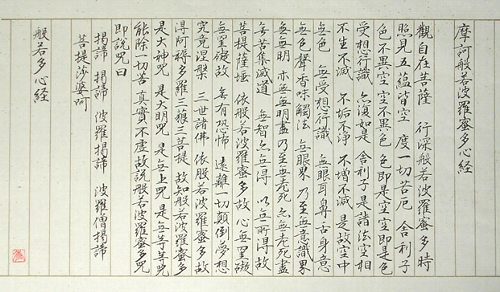 摩訶般若波羅蜜多心經
觀自在菩薩 行深般若波羅蜜多時
照見五蘊皆空 度一切苦厄 舍利子
色不異空 空不異色 色即是空 空即是色
受想行識 亦復如是 舍利子 是諸法空相
不生不滅 不垢不淨 不增不減 是故空中
無色 無受想行識 無眼耳鼻舌身意
無色聲香味觸法 無眼界 乃至無意識界
無無明 亦無無明盡 乃至無老死 亦無老死盡
無苦集滅道 無智亦無得 以無所得故
菩提薩埵 依般若波羅蜜多故 心無罣礙
無罣礙故 無有恐怖 遠離一切顛倒夢想
究竟涅槃 三世諸佛 依般若波羅蜜多故
得阿耨多羅三藐三菩提 故知般若波羅蜜多
是大神咒 是大明咒 是無上咒 是無等等咒
能除一切苦 真實不虛 故說般若波羅蜜多咒
即說咒曰
揭諦 揭諦 波羅揭諦 波羅僧揭諦
菩提莎婆訶
般若多心經